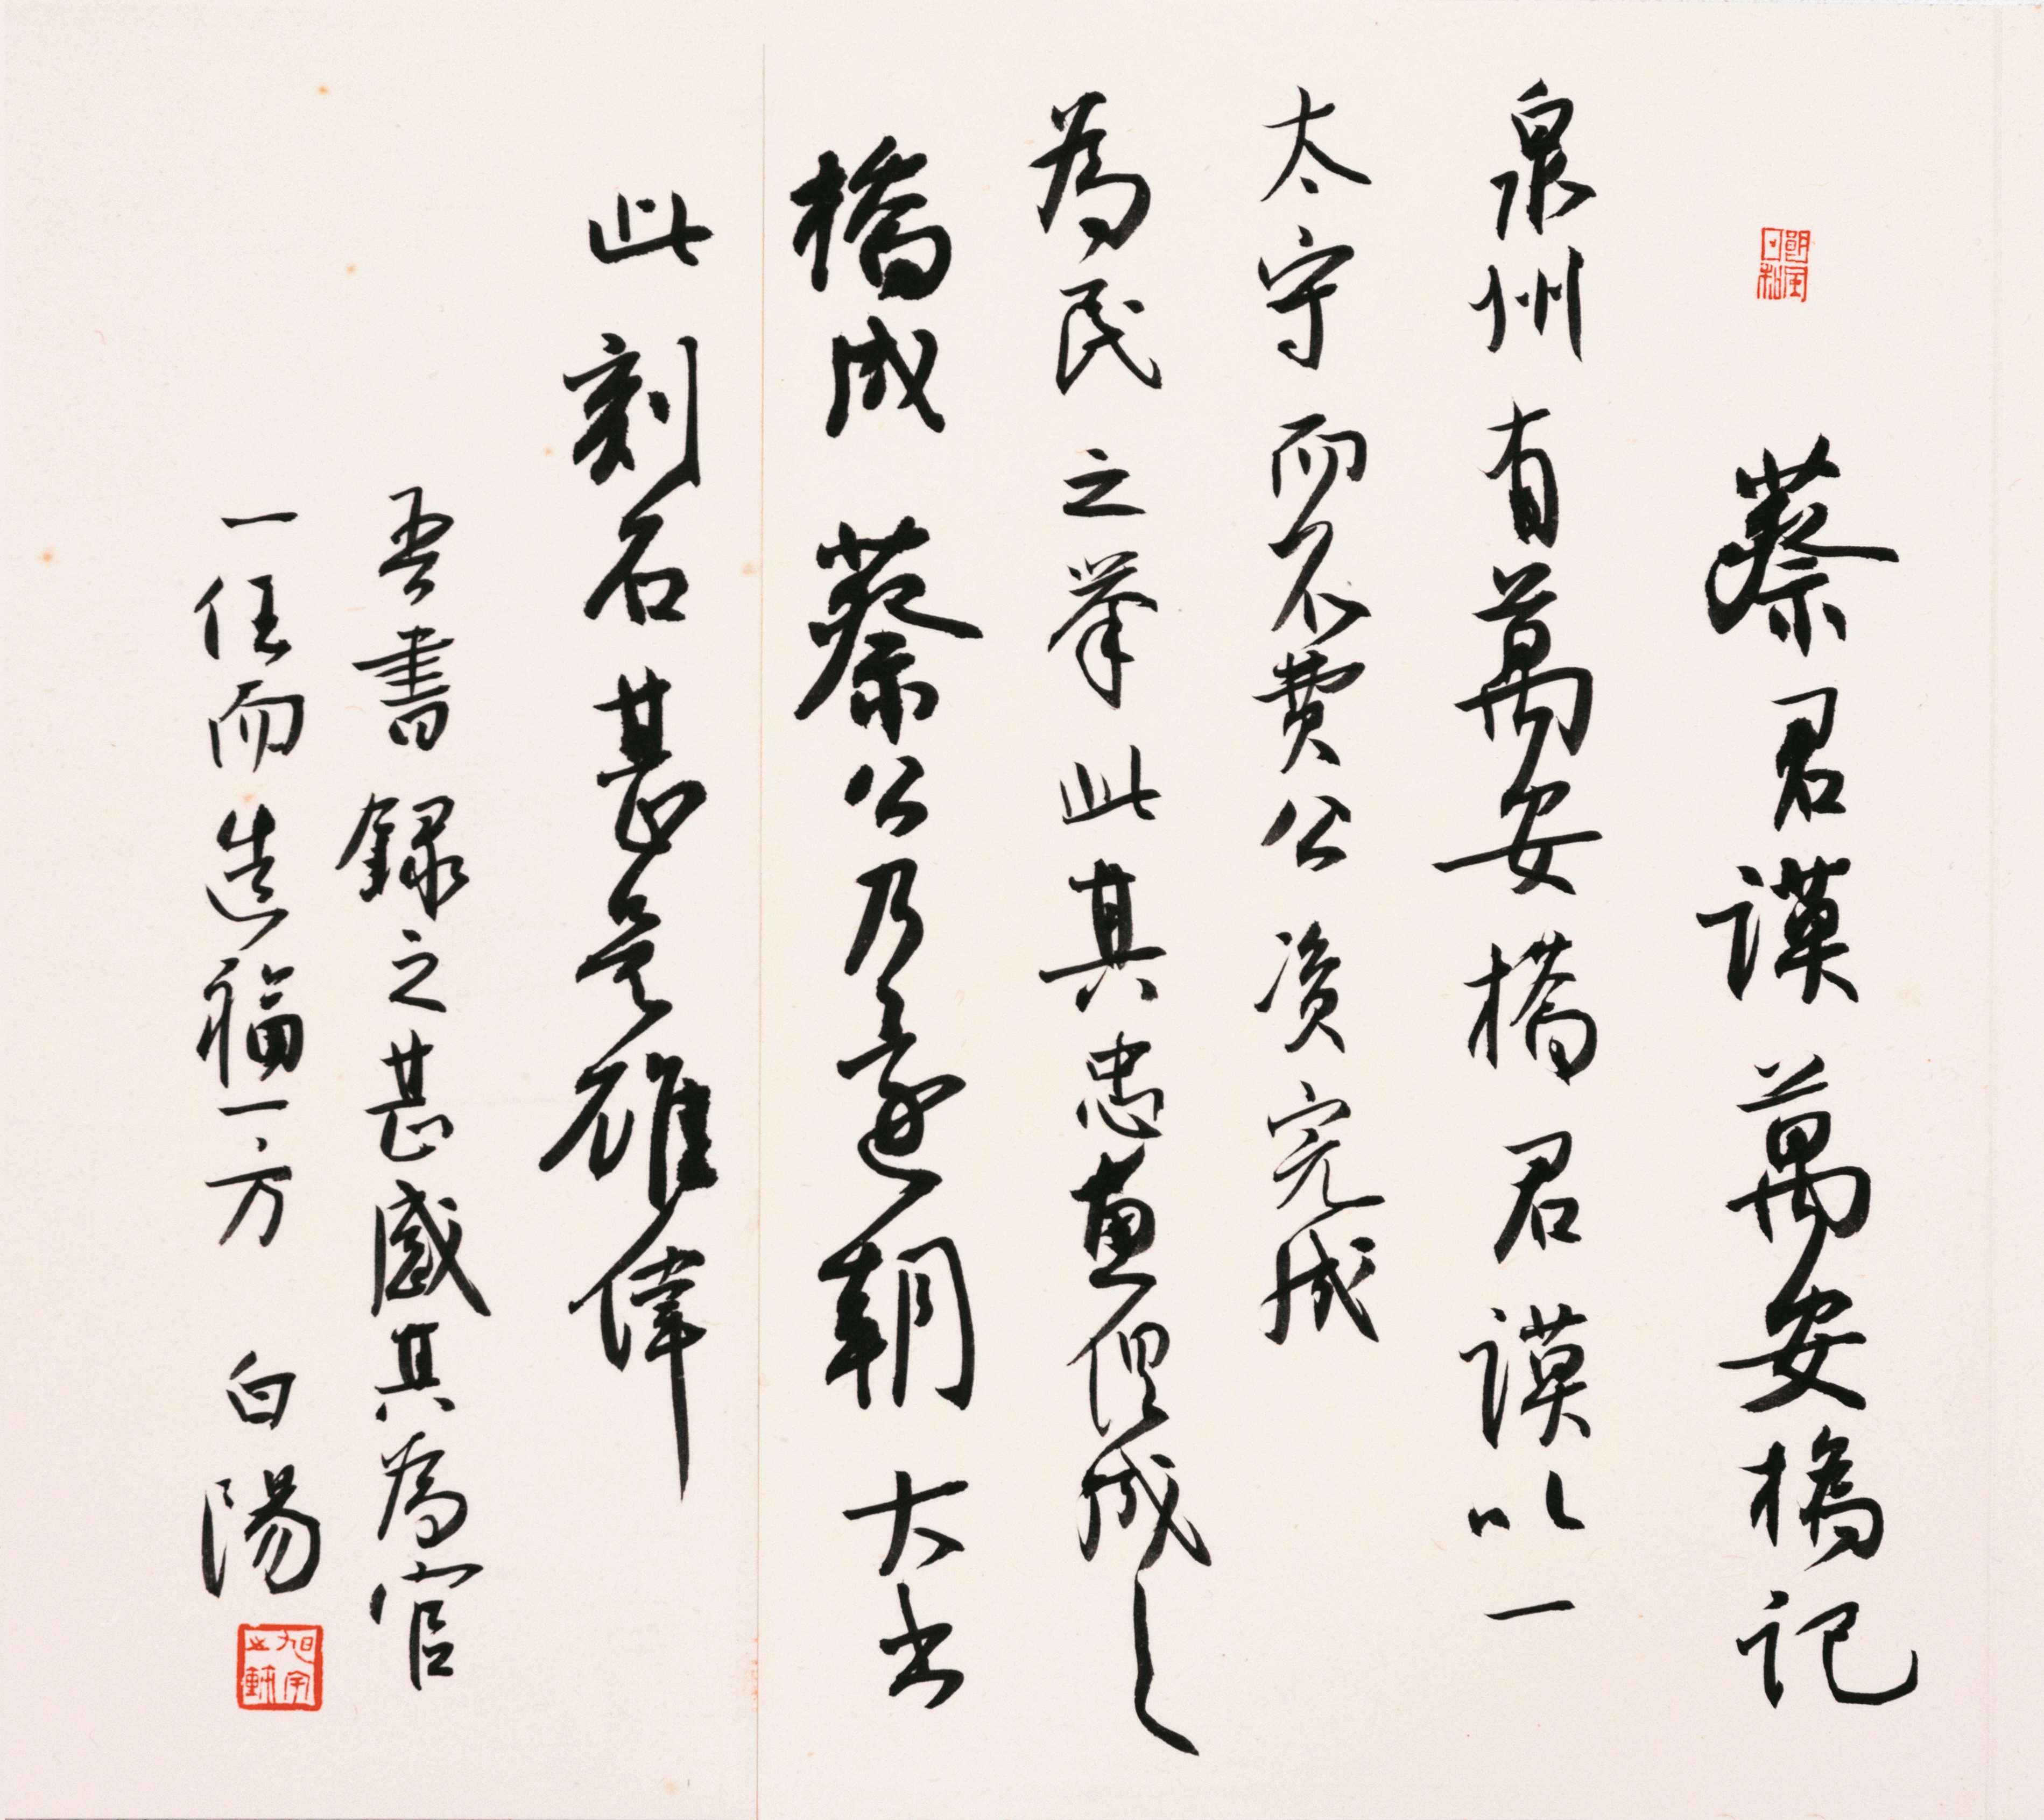 蔡君謨萬安橋記
泉州有萬安橋君謨以一
太守而不費公资完成
為民之举此其忠惠成之
橋成蔡公乃還朝大書
此刻石甚是雄偉
吾書録之甚感其為官
一任而造福一方 白陽
旭宇之鉥